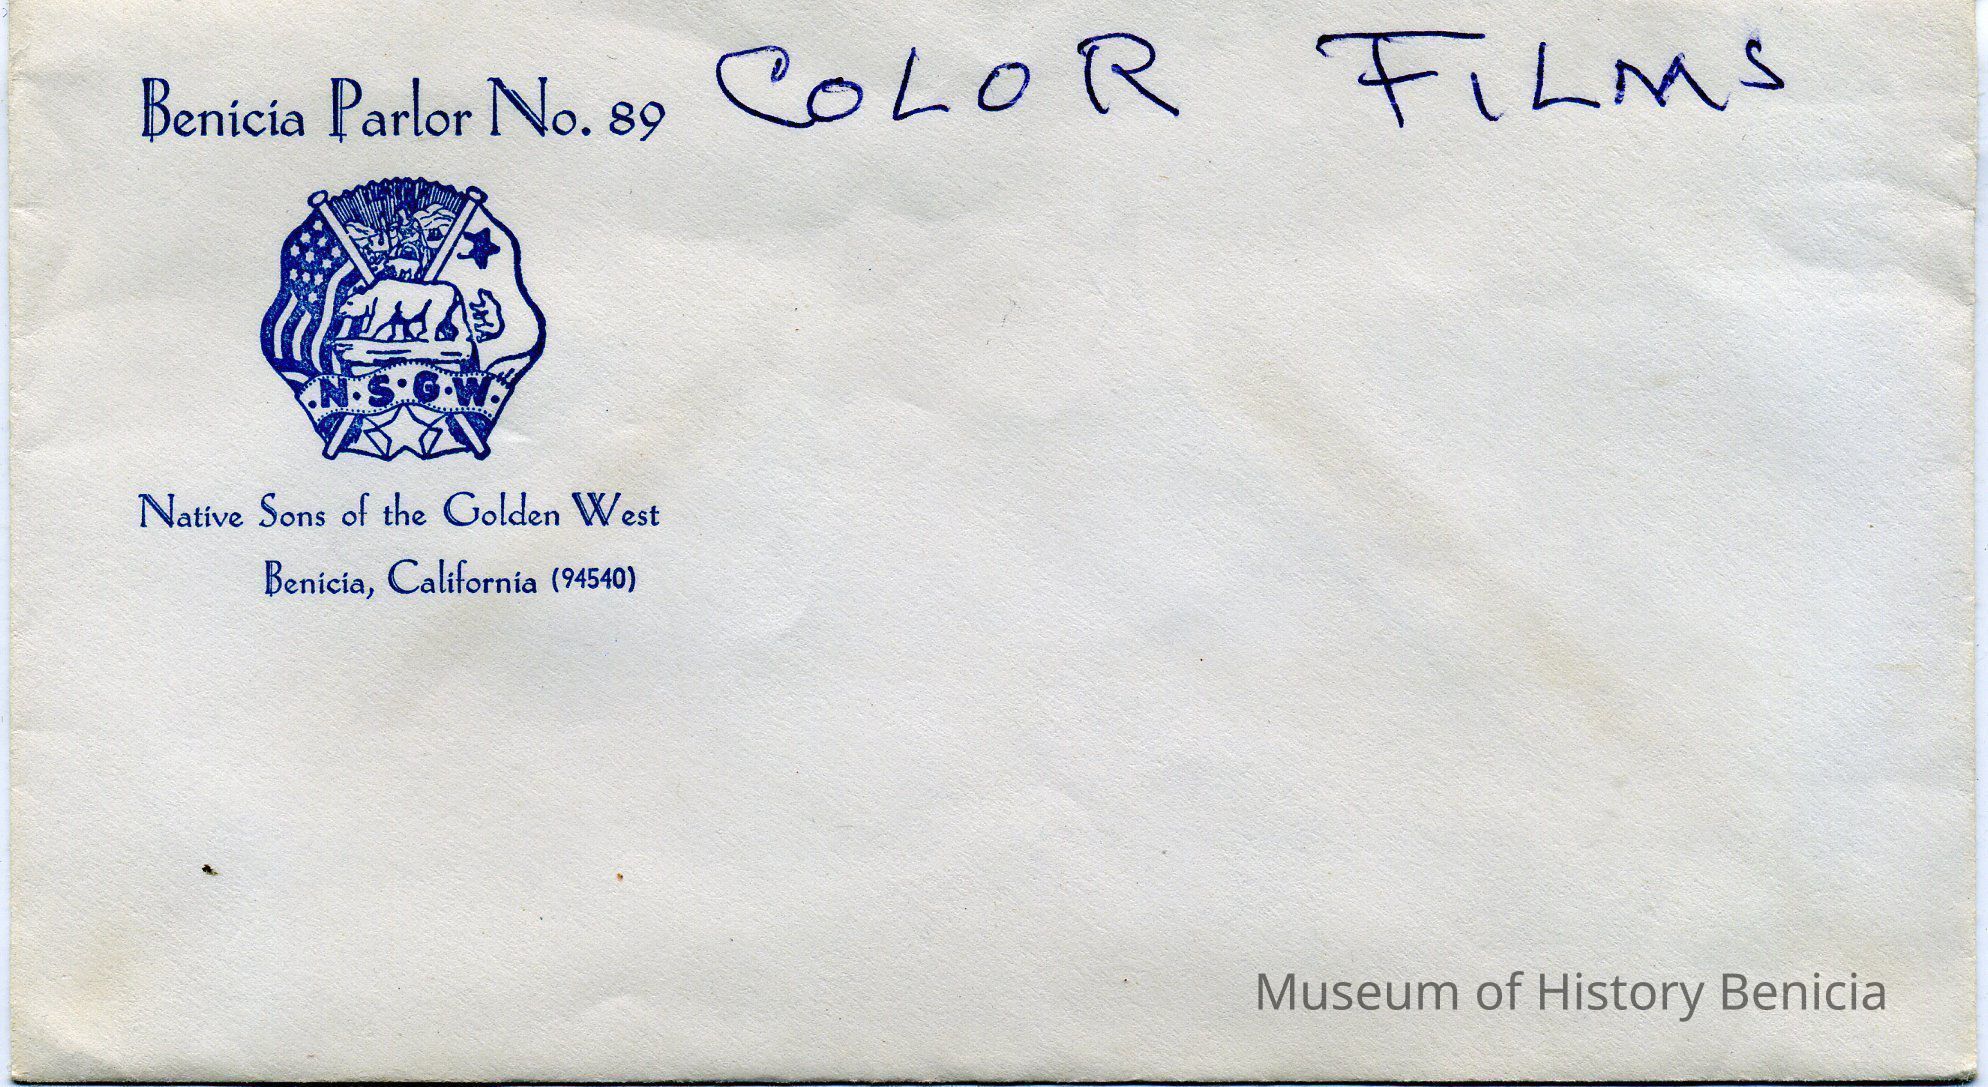 Benicia Parlor No. 89
COLOR FILMS
·N·S·G·W·
Native Sons of the Golden West
Benicia, California (94540)
Museum of History Benicia